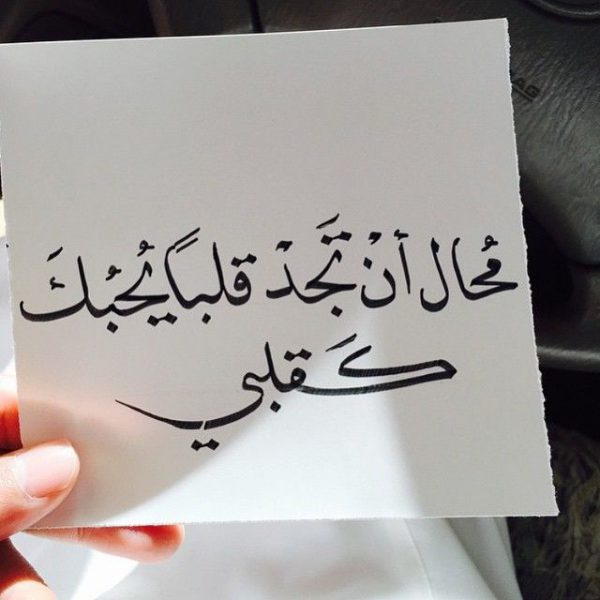 مُحال أنْ تَجدْ قلباً يُحبُكَ
كَقلبي
AG